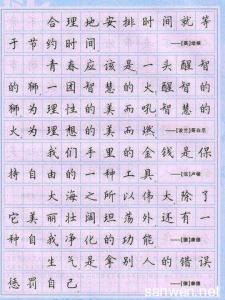 合理地安排时间就等
于节约时间
——[英]培根
青春应该是一头醒智
的狮一团智慧的火醒智的
狮为理性的美而吼智慧的
火为理想的美而燃
——[波兰]哥白尼
我们手里的金钱是保
持自由的一种工具
——[法]卢梭
大海之所以伟大除了
它美丽壮阔坦荡外还有一
种自我净化的功能
——[德]康德
生气是拿别人的错误
惩罚自己
——[德]康德
sanwen.net